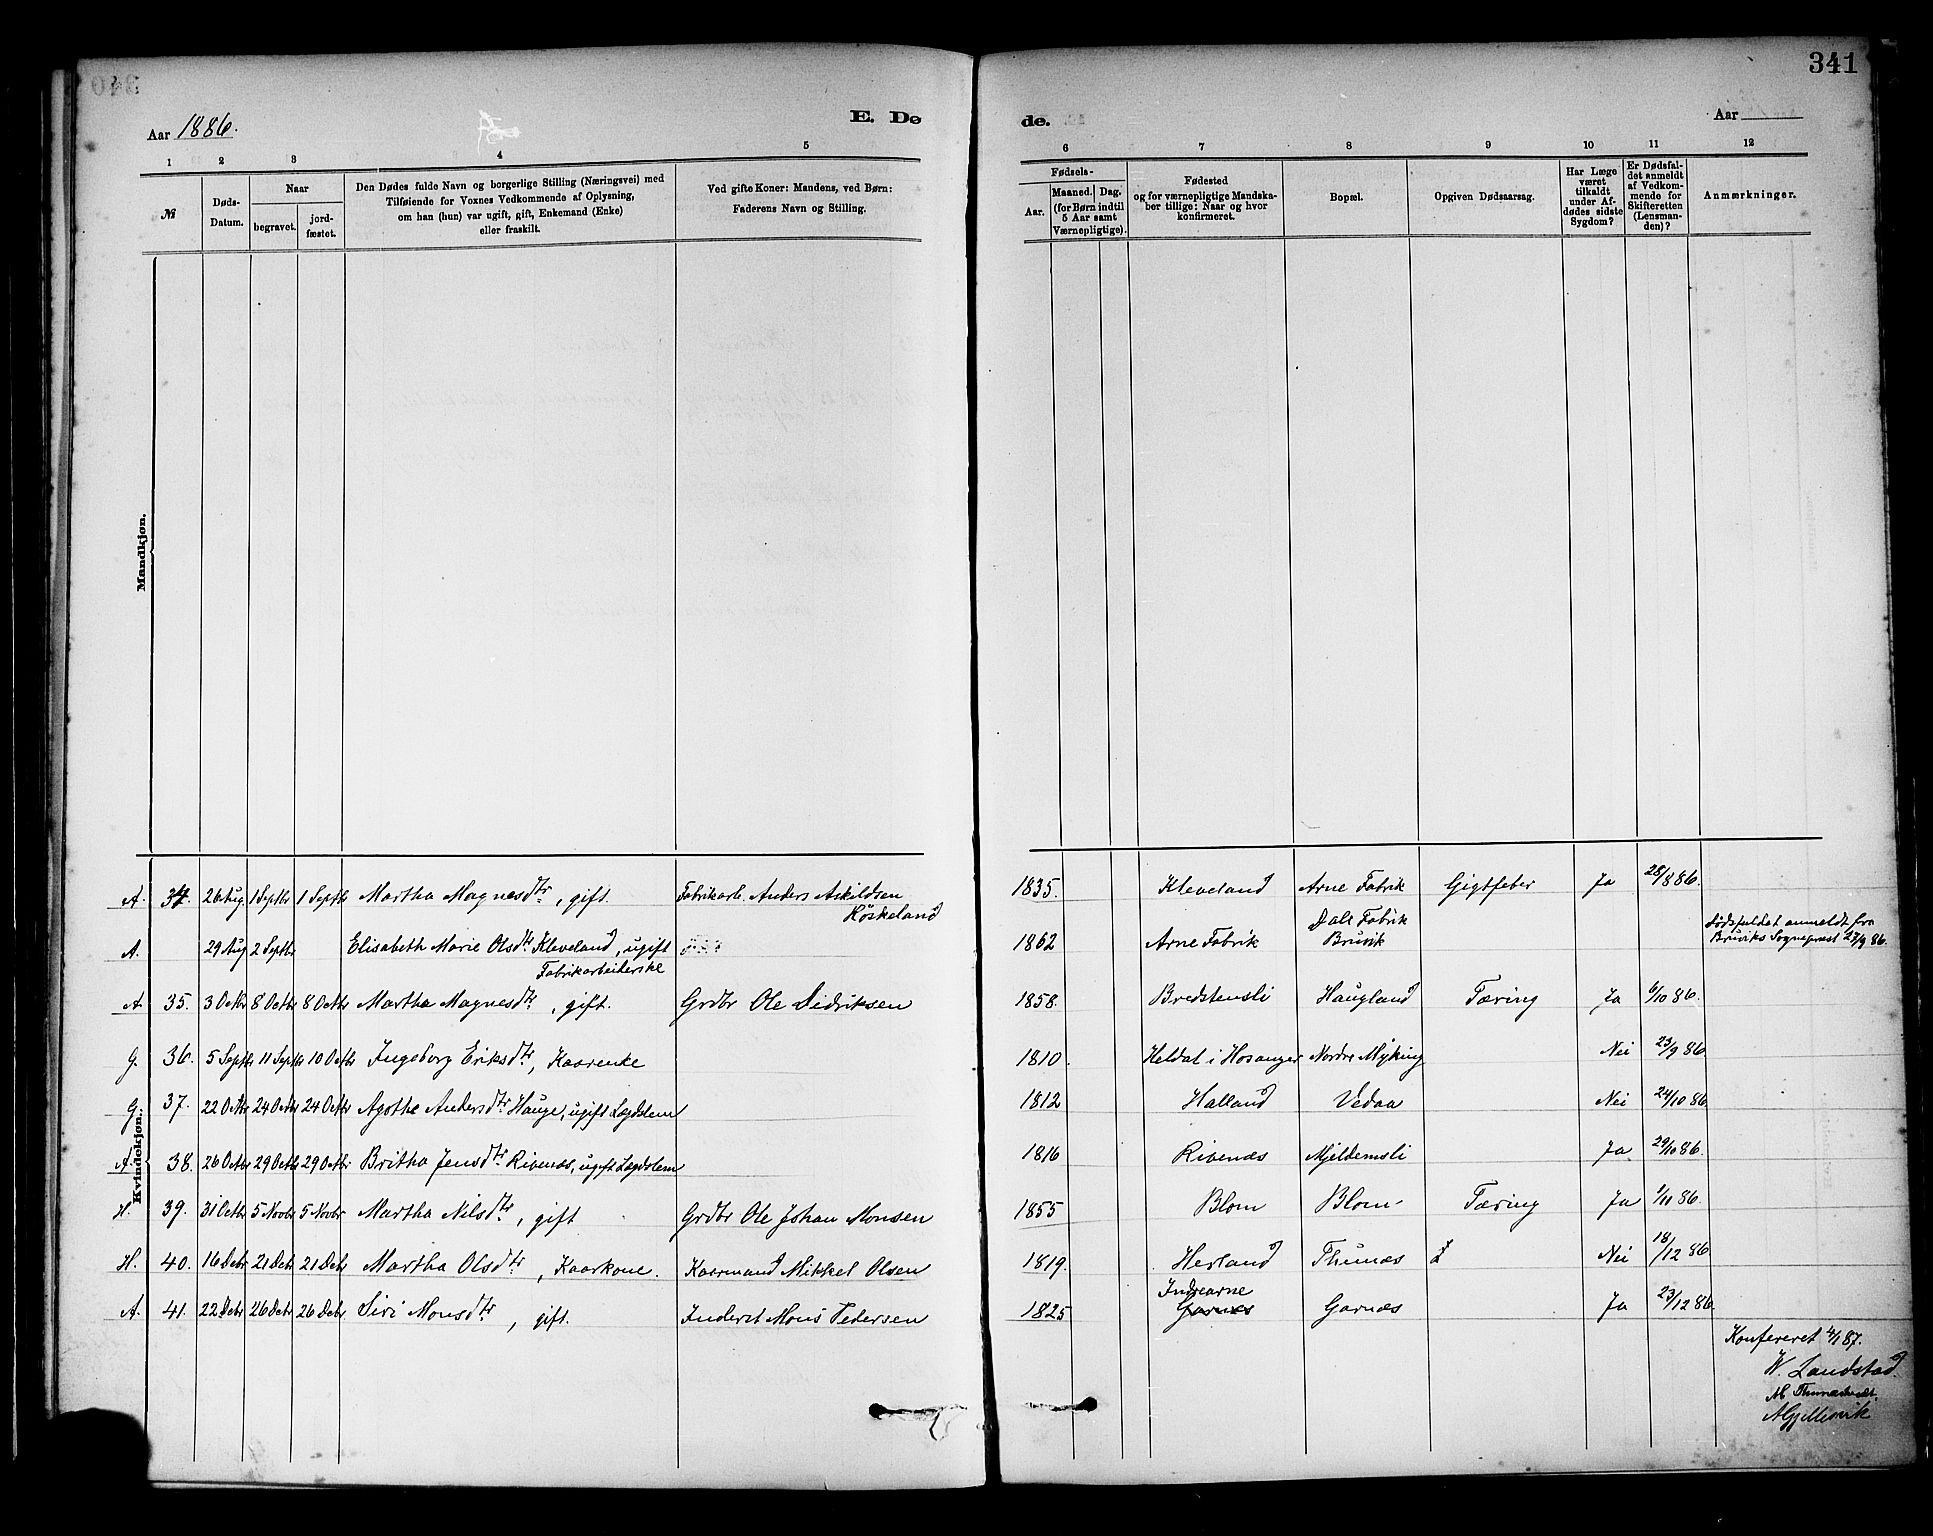 341
Aar 1886.
E. Dø
de.
Aar
1 2 3 4 5
6 7 8 9 10 11 12
№
Døds-
Datum.
Naar
begravet.
jord-
fæstet.
Den Dødes fulde Navn og borgerlige Stilling (Næringsvei) med
Tilføiende for Voxnes Vedkommende af Oplysning,
om han (hun) var ugift, gift, Enkemand (Enke)
eller fraskilt.
Ved gifte Koner: Mandens, ved Børn:
Faderens Navn og Stilling.
Fødsels-
Aar.
Maaned. Dag.
(for Børn indtil
5 Aar samt
Værnepligtige).
Fødested
og for værnepligtige Mandska-
ber tillige: Naar og hvor
konfirmeret.
Bopæl.
Opgiven Dødsaarsag.
Har Læge
været
tilkaldt
under Af-
dødes sidste
Sygdom?
Er Dødsfal-
det anmeldt
af Vedkom-
mende for
Skifteretten
(Lensman-
den)?
Anmærkninger.
Mandkjøn.
Kvindekjøn.
A. 34. 26 Aug. 1 Septbr 1 Septbr Martha Magnesdtr, gift. Fabrikarb. Anders Askildsen Höskeland 1835. Kleveland Arne Fabrik Gigtfeber Ja 28/8 86.
A. 29 Aug 2 Septbr Elisabeth Marie Olsdtr Kleveland, ugift Fabrikarbeiderske 1862 Arne Fabrik Dale Fabrik Bruvik Dødsfaldet anmeldt fra Bruviks Sognepræst 27/9 86.
A. 35. 3 Octbr 8 Octbr 8 Octbr Martha Magnesdtr, gift. Grdbr Ole Didriksen 1858. Bredstensli Haugland Tæring Ja 6/10 86.
G. 36. 5 Septbr 11 Septbr 10 Octbr Ingeborg Eriksdtr, Kaarenke 1810. Heldal i Hosanger Nordre Myking Nei 23/9 86
G. 37. 22 Octbr 24 Octbr 24 Octbr Agothe Andersdtr Hauge, ugift Lægdslem 1812 Halland Vedaa Nei 24/10 86
A. 38. 26 Octbr 29 Octbr 29 Octbr Britha Jensdtr Rivenæs, ugift Lægdslem 1816 Rivenæs Mjeldemsli Ja 29/10 86.
H. 39. 31 Octbr 5 Novbr 5 Novbr Martha Nilsdtr, gift Grdbr Ole Johan Monsen 1855 Blom Blom Tæring Ja 1/11 86.
H. 40. 16 Decbr 21 Decbr 21 Decbr Martha Olsdtr, Kaarkone. Kaarmand Mikkel Olsen 1819. Herland Thunæs Nei 18/12 86
A. 41. 22 Decbr 26 Decbr 26 Decbr Siri Monsdtr, gift. Inderst Mons Pedersen 1825 Indrearne Garnæs Garnæs Ja 23/12 86.
Konfereret 4/1 87.
W. Landstad